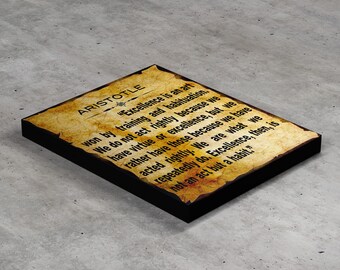 ARISTOTLE
"Excellence is an art
won by training and habituation.
We do not act rightly because we
have virtue or excellence, but we
rather have those because we have
acted rightly. We are what we
repeatedly do. Excellence, then, is
not an act but a habit."